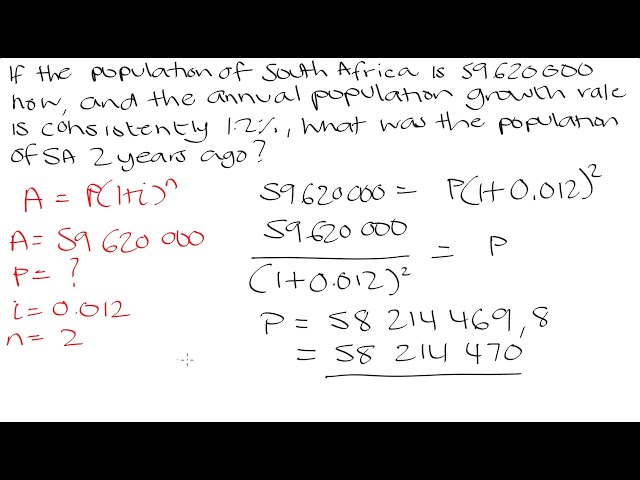 If the population of South Africa is 59620000
now, and the annual population growth rate
is consistently 1.2%, what was the population
of SA 2 years ago?
A = P(1+i)^n
A = 59 620 000
P = ?
i = 0.012
n = 2
59620000 = P(1+0.012)^2
59620 000
(1+0.012)^2
= P
P = 58 214 469,8
= 58 214 470